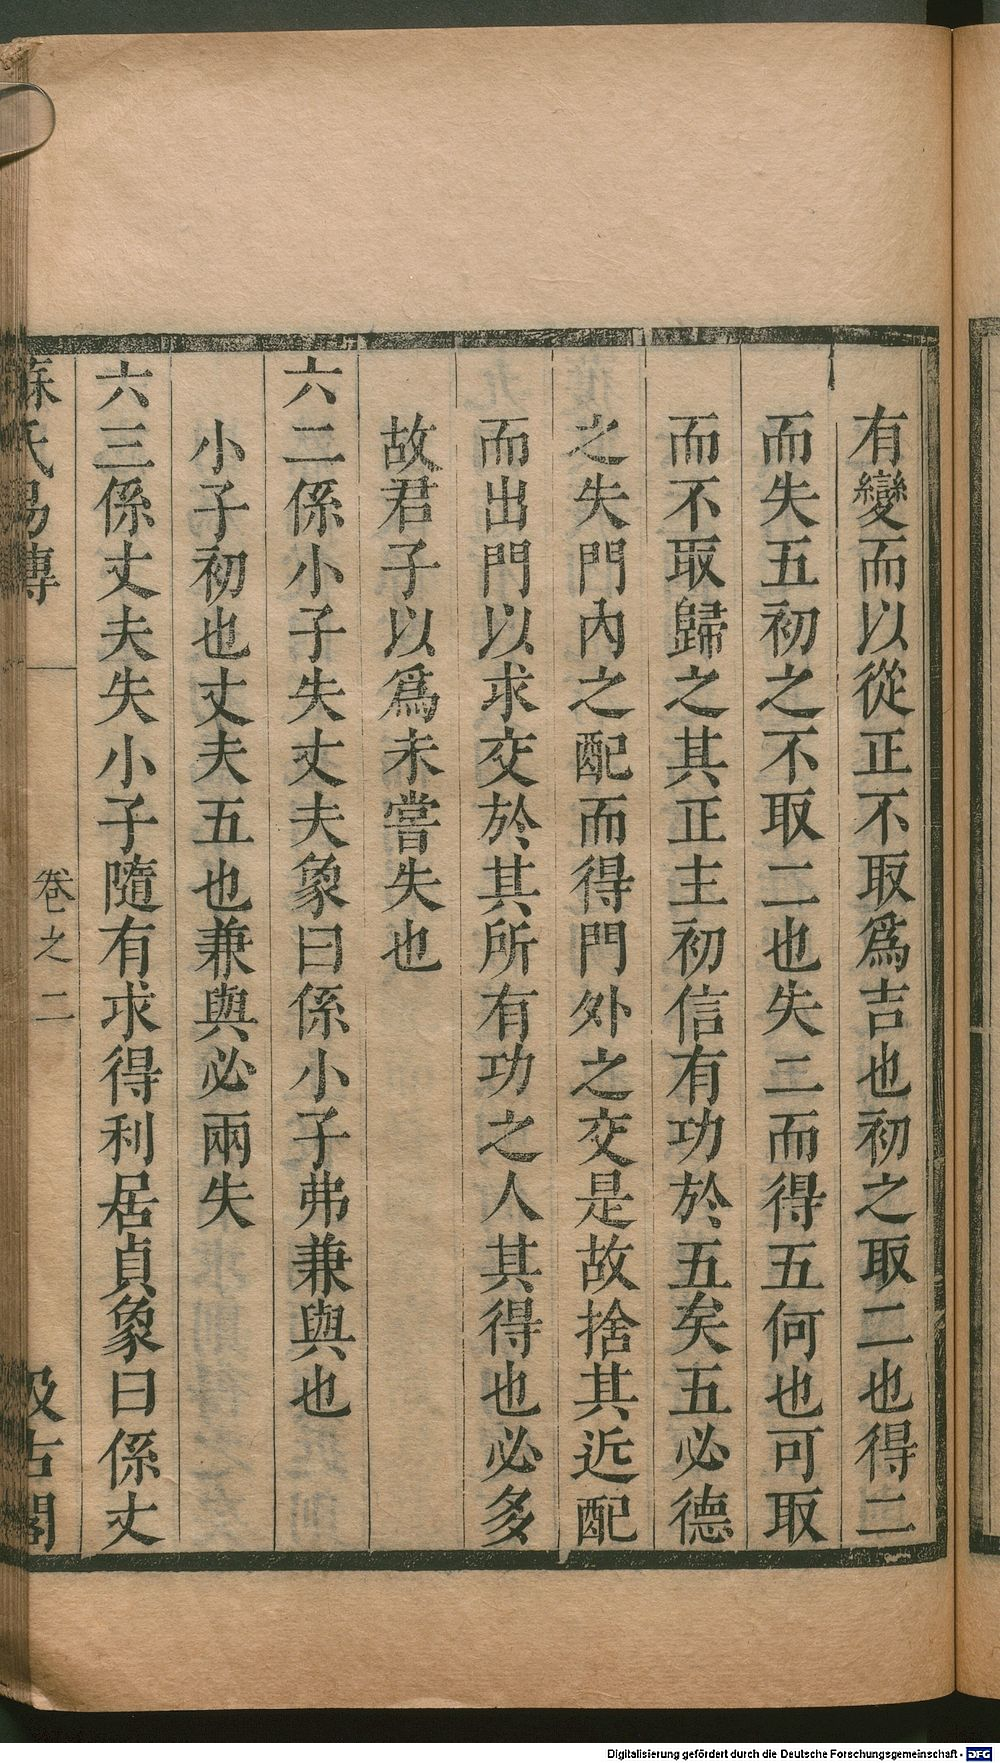 有變而以從正不取爲吉也初之取二也得二
而失五初之不取二也失二而得五何也可取
而不取歸之其正主初信有功於五矣五必德
之失門內之配而得門外之交是故捨其近配
而出門以求交於其所有功之人其得也必多
故君子以爲未嘗失也
六二係小子失丈夫象曰係小子弗兼與也
小子初也丈夫五也兼與必兩失
六三係丈夫失小子隨有求得利居貞象曰係丈
蘇氏易傳 卷之二 汲古閣
Digitalisierung gefördert durch die Deutsche Forschungsgemeinschaft - DFG